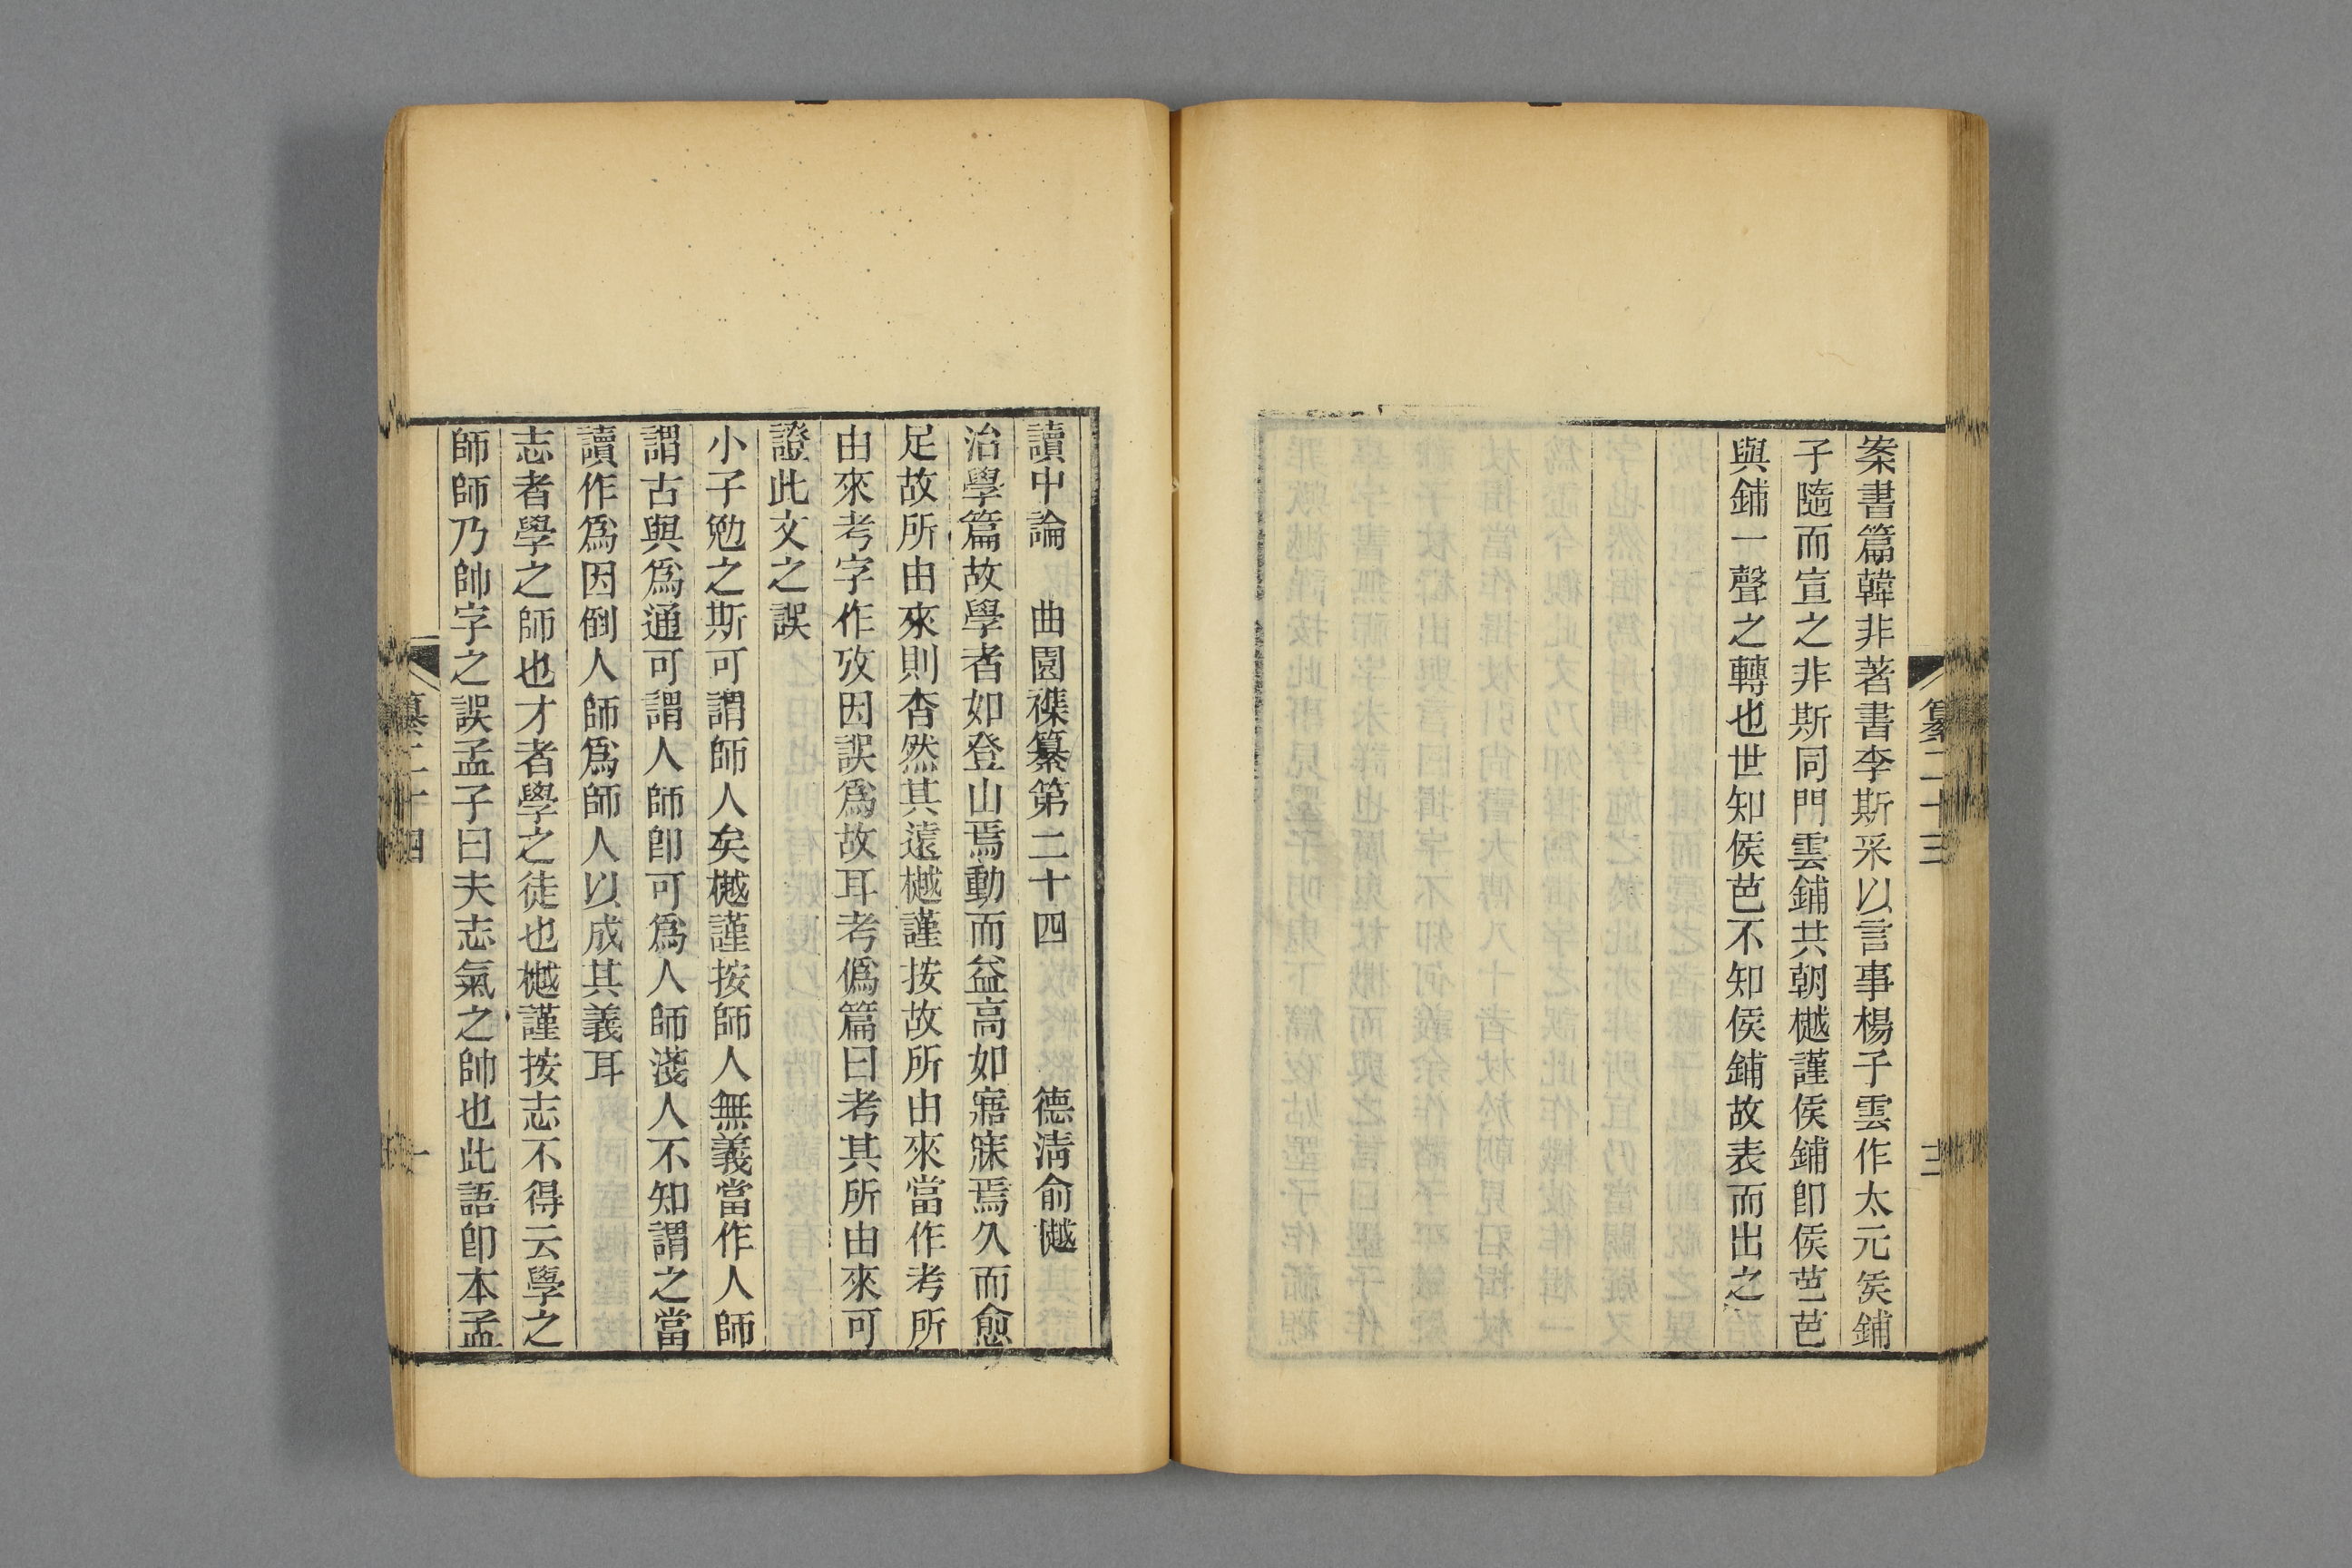 纂二十三
三
案書篇韓非著書李斯采以言事楊子雲作太元矦鋪
子隨而宣之非斯同門雲鋪共朝樾謹矦鋪卽矦芭芭
與鋪一聲之轉也世知矦芭不知矦鋪故表而出之
讀中論 曲園襍纂第二十四 德淸俞樾
治學篇故學者如登山焉動而益高如寤寐焉久而愈
足故所由來則杳然其遠樾謹按故所由來當作考所
由來考字作攷因誤爲故耳考僞篇曰考其所由來可
證此文之誤
小子勉之斯可謂師人矣樾謹按師人無義當作人師
謂古與爲通可謂人師卽可爲人師淺人不知謂之當
讀作爲因倒人師爲師人以成其義耳
志者學之師也才者學之徒也樾謹按志不得云學之
師師乃帥字之誤孟子曰夫志氣之帥也此語卽本孟
纂二十四
一